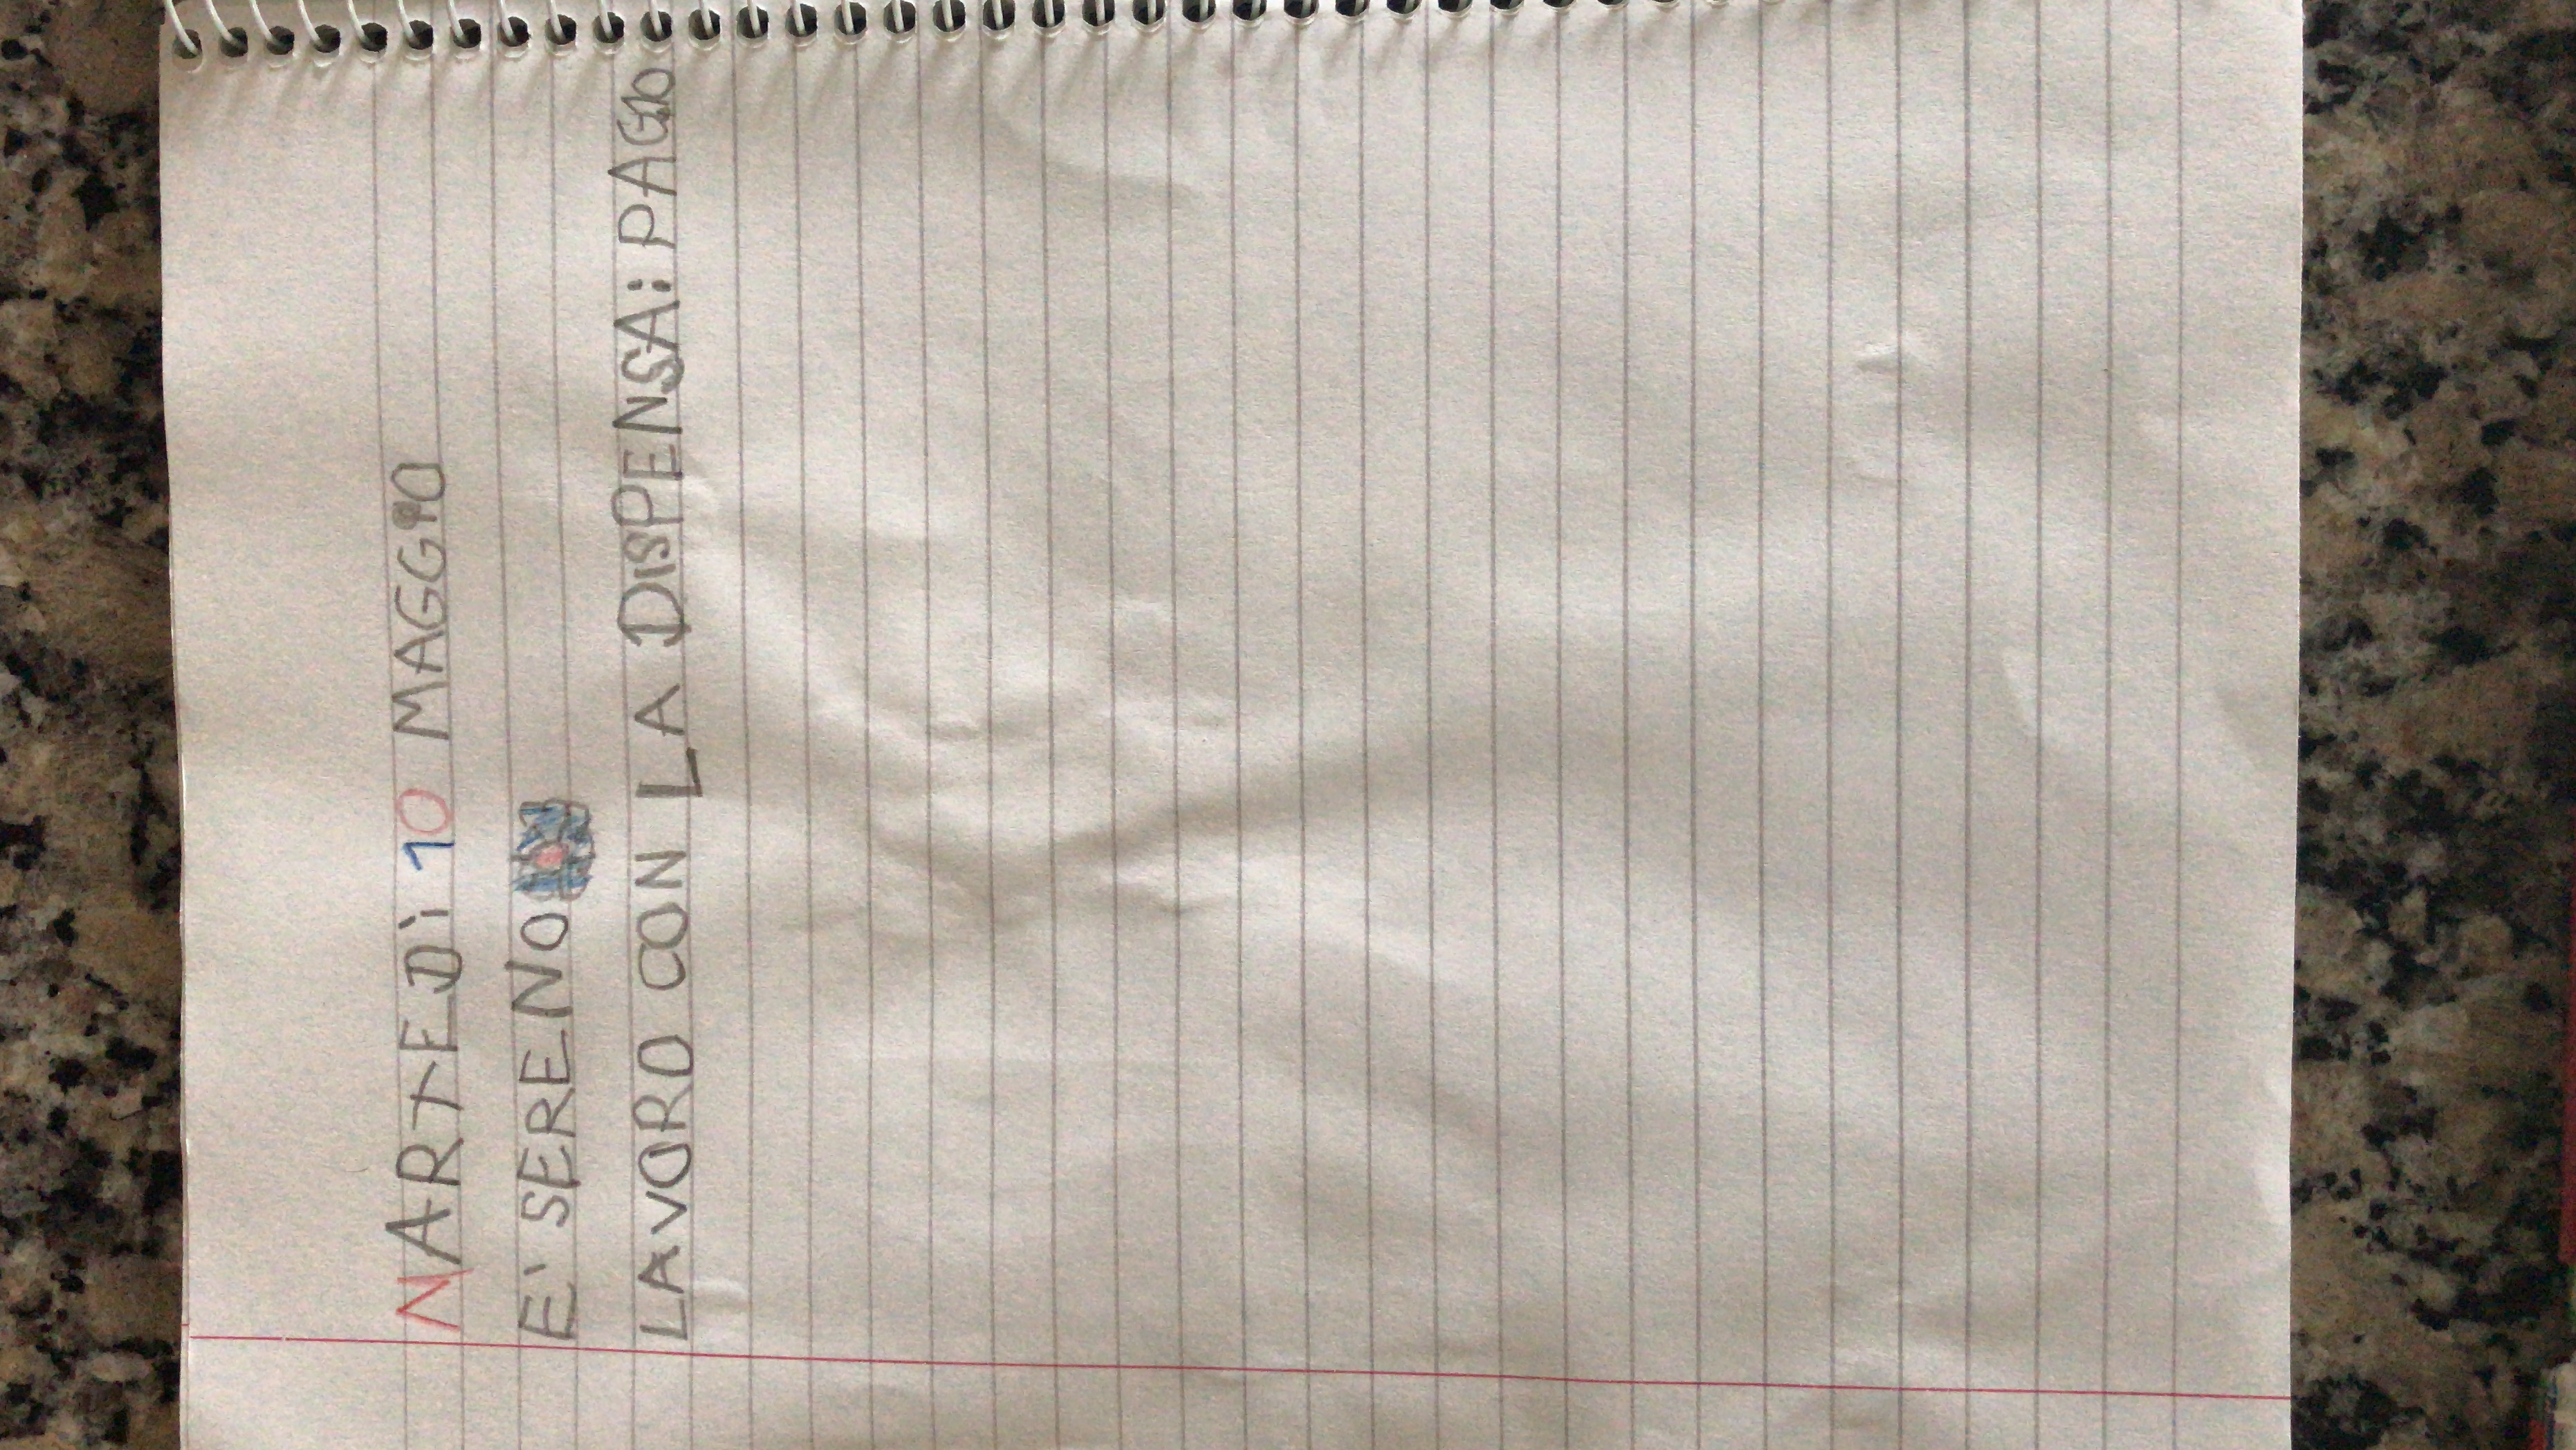 NARTEDÌ 10 MAGGIO
E' SERENO
LAVORO CON LA DISPENSA: PAG.10